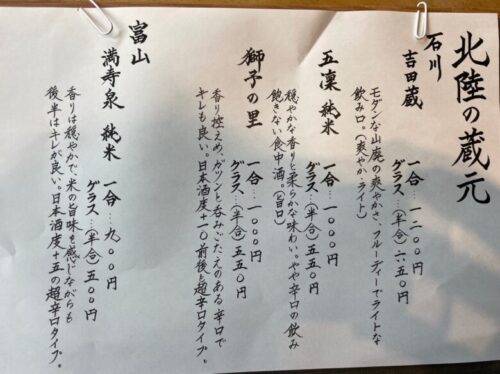 北陸の蔵元
石川
吉田蔵 一合…一二〇〇円
グラス…(半合)六五〇円
モダンな山廃の爽やかさ、フルーティーでライトな
飲み口。(爽やか・ライト)
五凛 純米 一合…一〇〇〇円
グラス…(半合)五五〇円
穏やかな香りと柔らかな味わい。やや辛口の飲み
飽きない食中酒。(旨口)
獅子の里 一合…一〇〇〇円
グラス…(半合)五五〇円
香り控えめ、ガツンと呑みごたえのある辛口で
キレも良い。日本酒度+一〇前後と超辛口タイプ。
富山
満寿泉 純米 一合…九〇〇円
グラス…(半合)五〇〇円
香りは穏やかで、米の旨味を感じながらも
後半はキレが良い。日本酒度+五の超辛口タイプ。